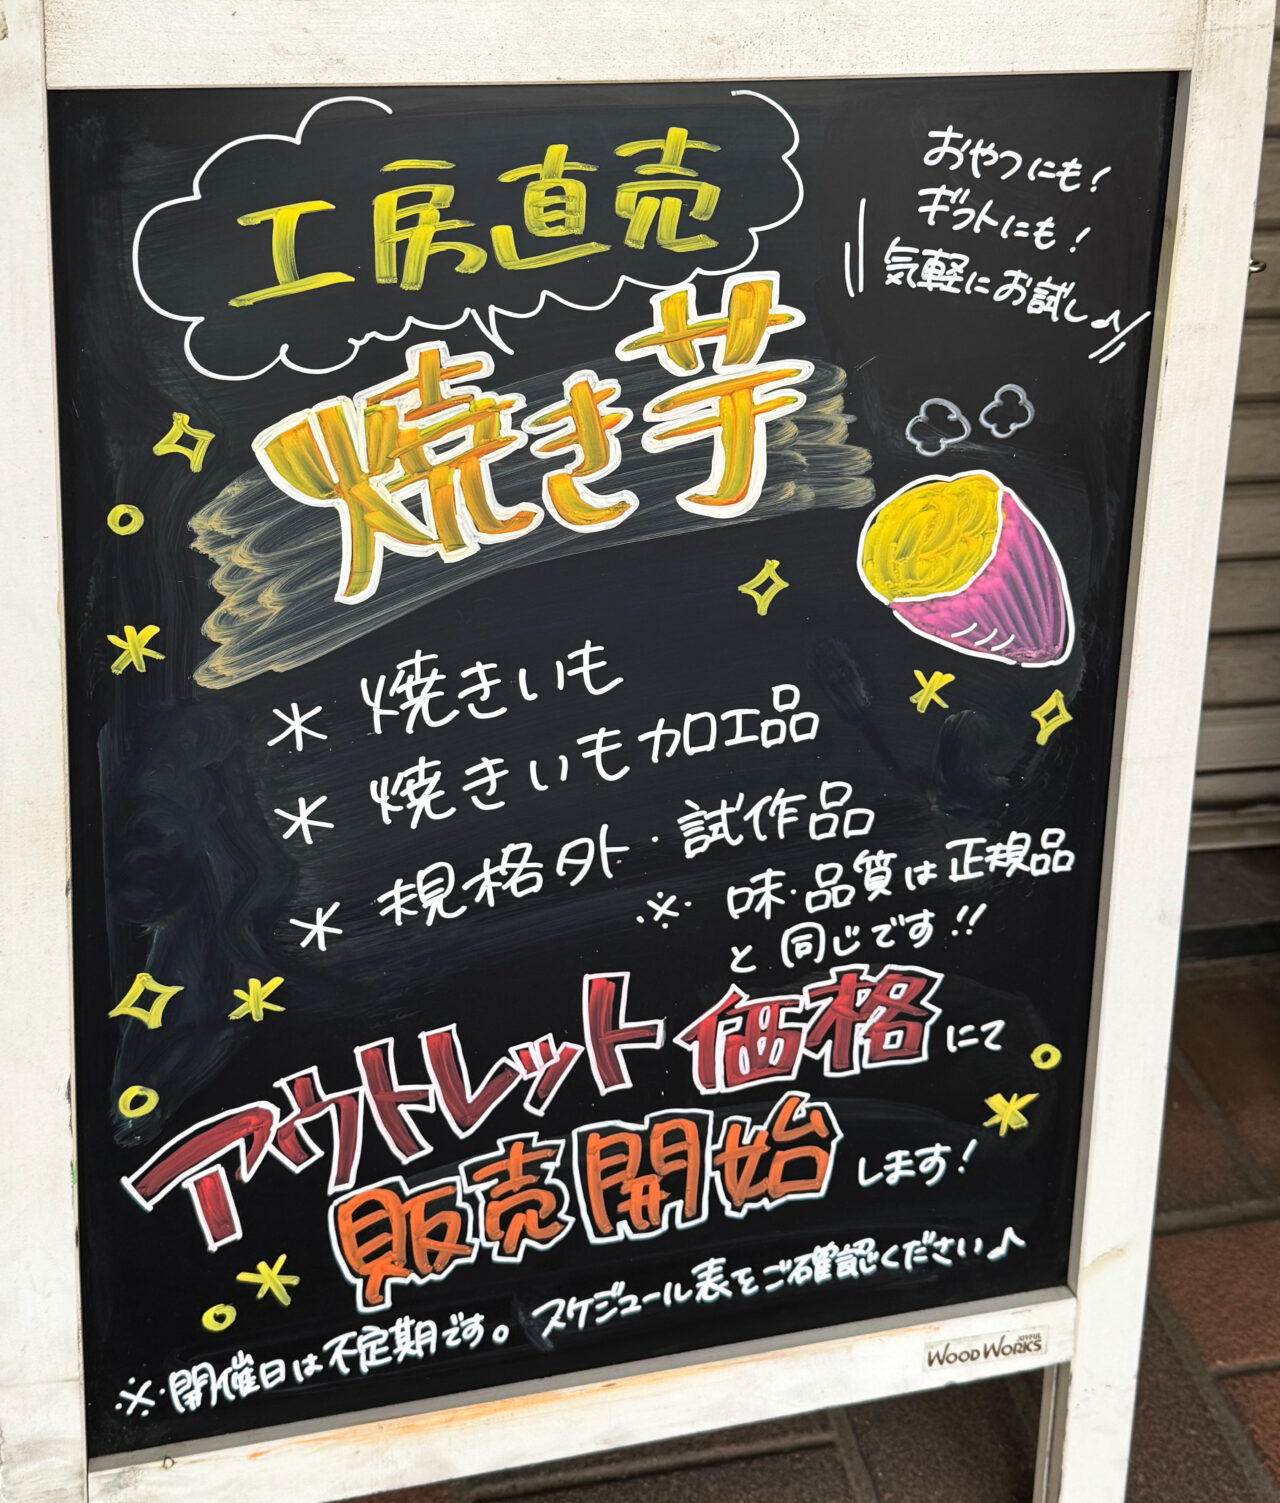 工房直売
おやつにも!
ギフトにも!
気軽にお試し♪
焼き芋
* 焼きいも
* 焼きいも加工品
* 規格外・試作品
※ 味・品質は正規品
と同じです!!
アウトレット価格にて
販売開始します!
※開催日は不定期です。スケジュール表をご確認ください♪
JOYFUL
WOOD WORKS